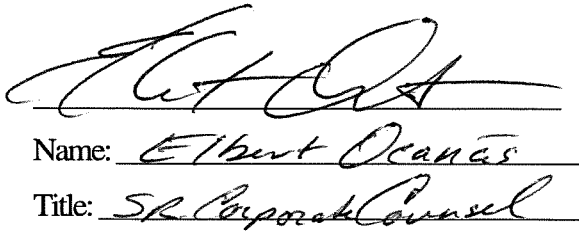 Name: Elbert Ocañas
Title: SR Corporate Counsel